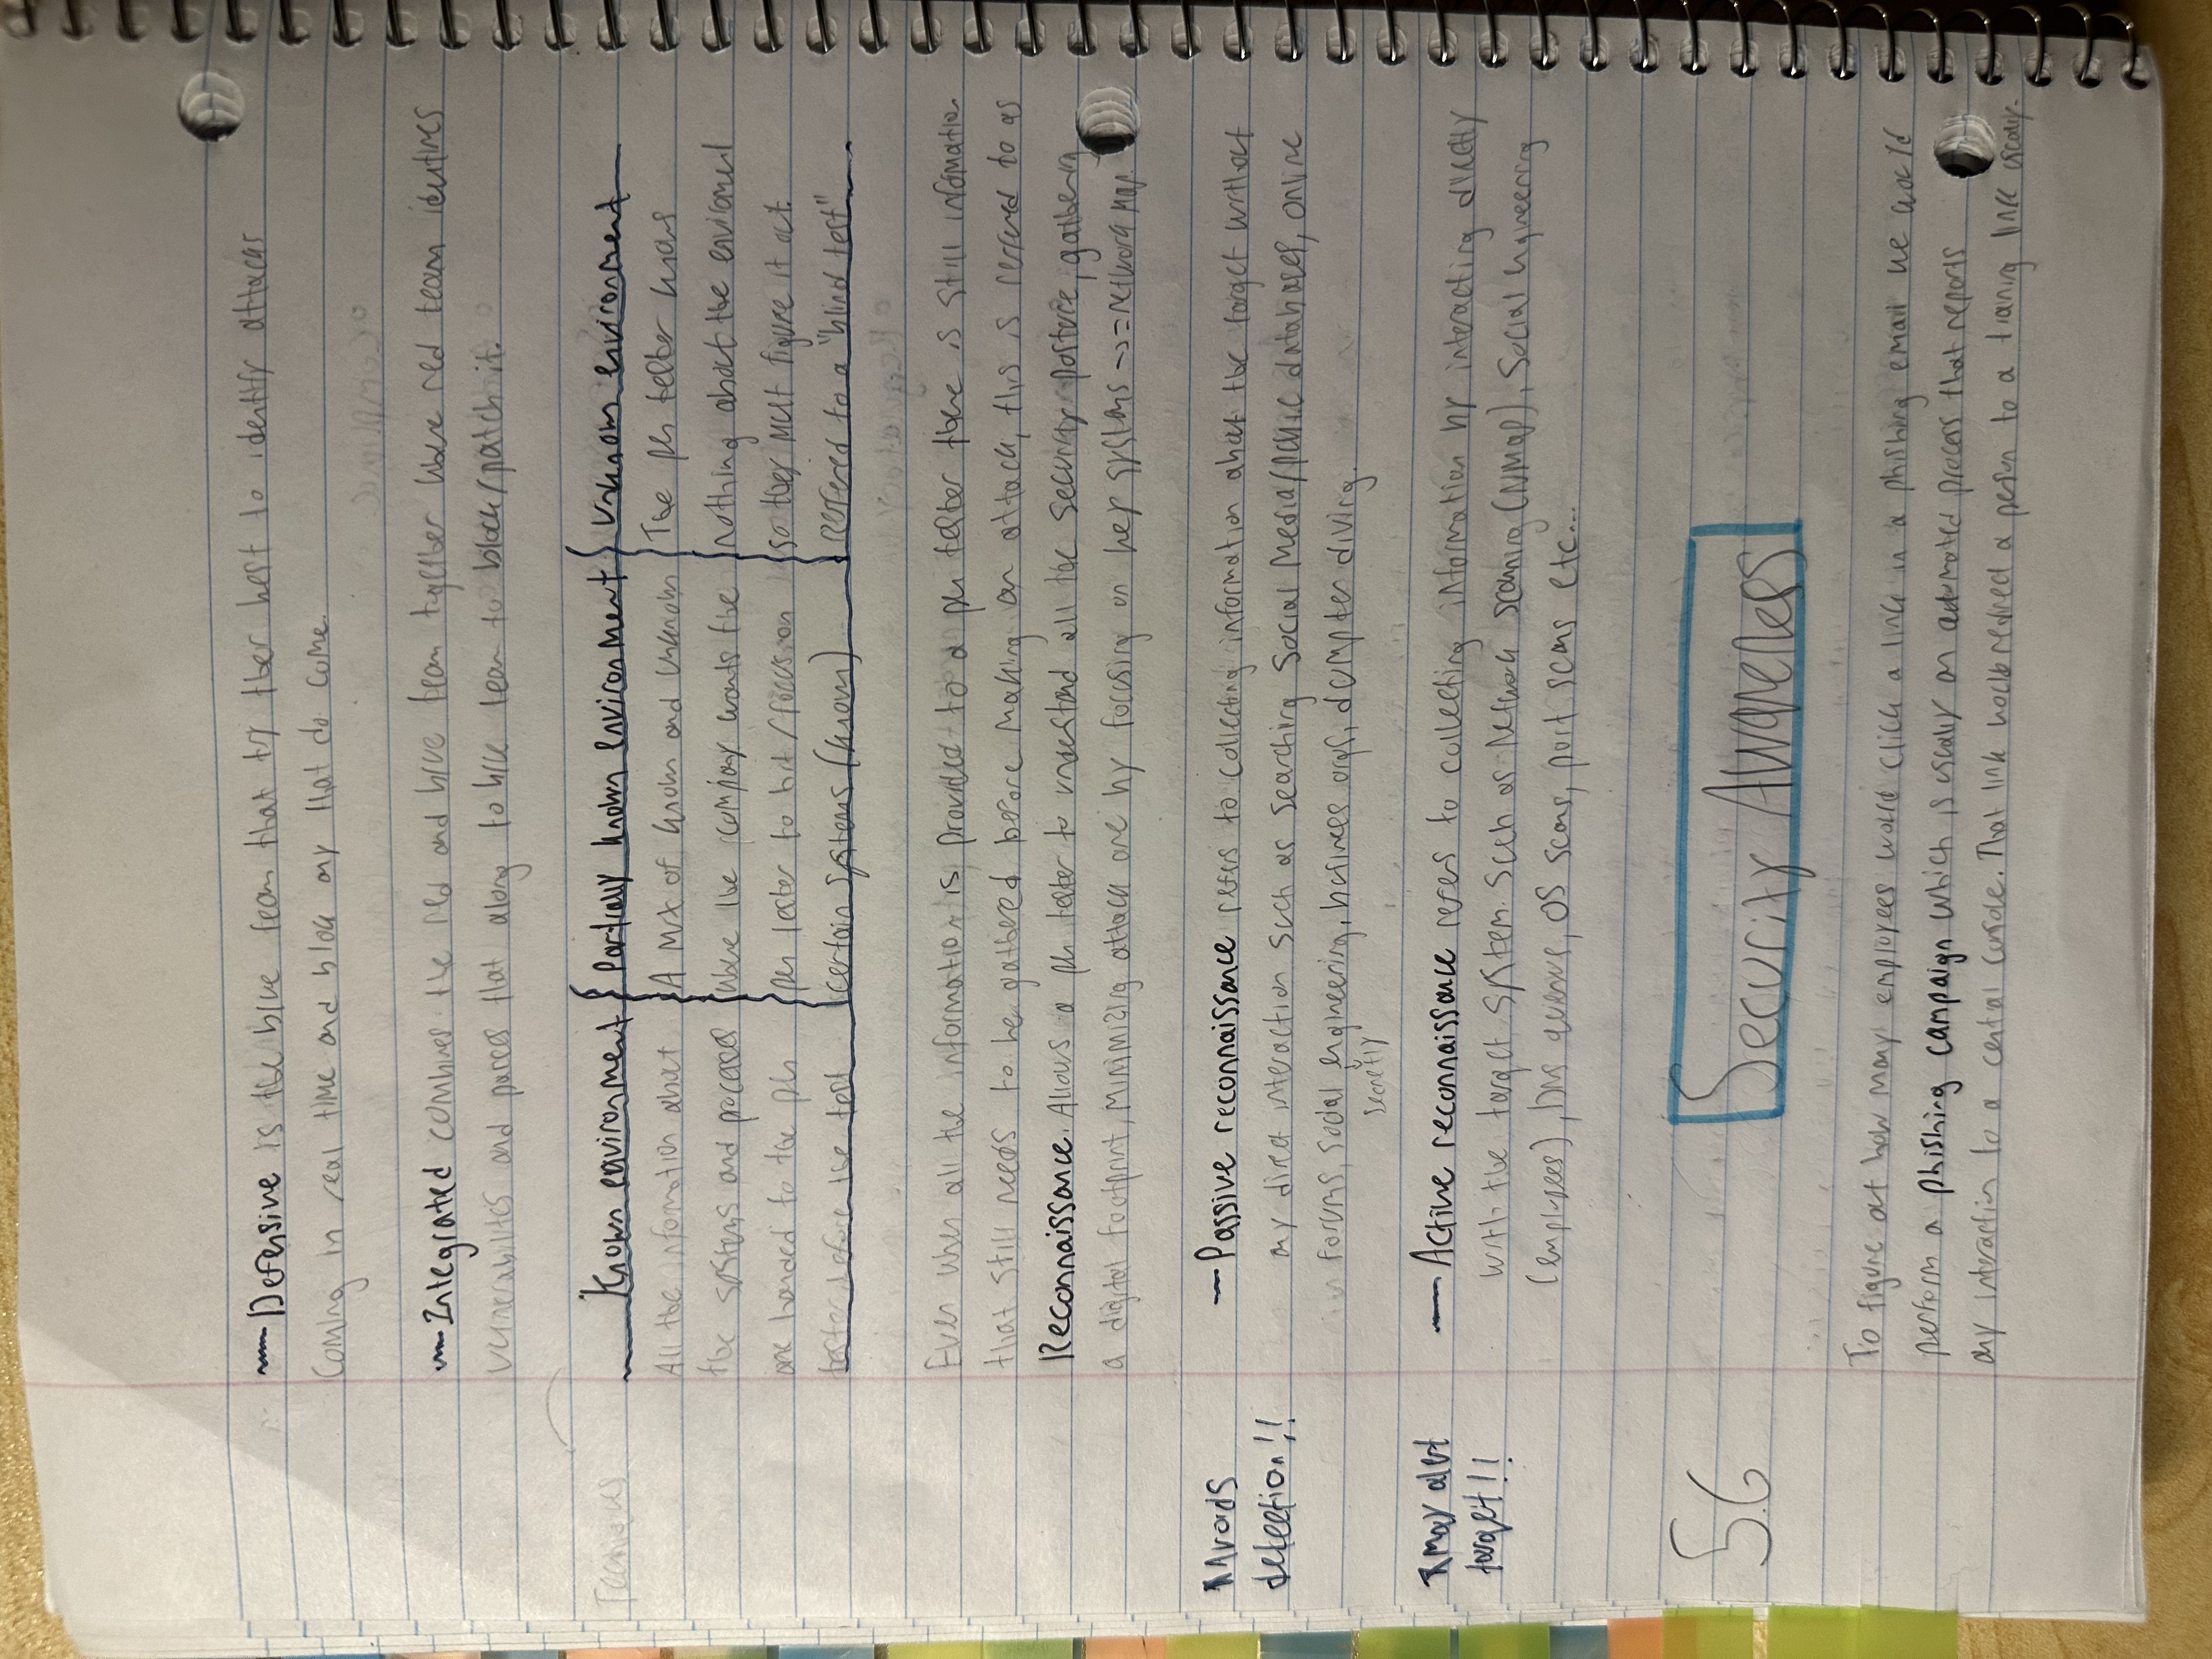 — Defensive is the blue team that try ther best to identify attacks
Coming in real time and block any that do come.
— Integrated combines the red and blue team together where red team identifies
vulnerabilites and passes that along to blue team to block/patch it.
Tecniques
Known environment | Partially known environment | Unknown environment
All the information about | A mix of known and unknown | The pen tester knows
the systems and processes | where the company wants the | nothing about the enviroment
are handed to the pen | pen tester to hit/focus on | so they must figure it out.
tester before the test | certain systems (known) | Reffered to a "blind test"
Even when all the information is provided to a pen tester there is still information
that still needs to be gathered before making an attack, this is referred to as
Reconnaissance. Allows a pen tester to understand all the security posture, gathering
a digital footprint, minimizing attack are by focusing on key systems -> = network map.
*Avoids
detection!!
— Passive reconnaissance refers to collecting information about the target without
any direct interaction such as searching Social Media/public databases, online
forums, social engineering, business orgs, dumpster diving.
secretly
*May alert
target!!
— Active reconnaissance refers to collecting information by interacting directly
with the target system. Such as Network scanning (NMAP), Social engineering
(employees), DNS queries, OS scans, port scans etc...
5.6
Security Awareness
To figure out how many employees would click a link in a phishing email we would
perform a phishing campaign which is usually an automated process that reports
any interaction to a central console. That link would redirect a person to a training link usually.